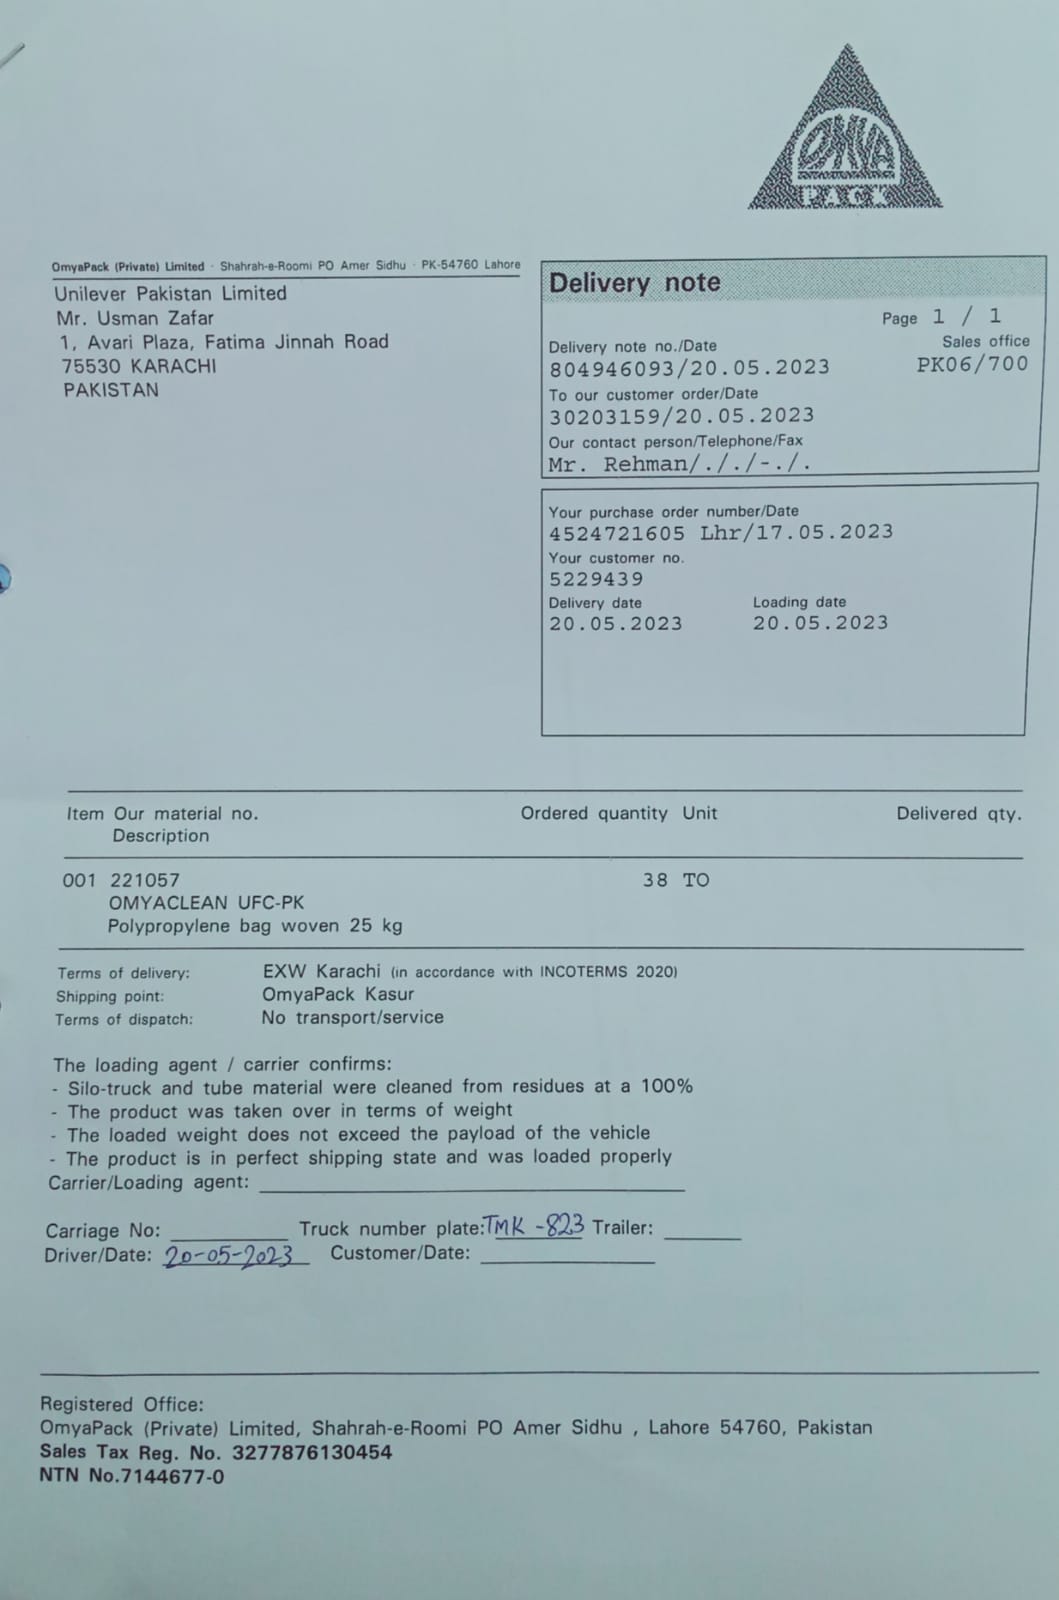 OMYA
PACK
OmyaPack (Private) Limited · Shahrah-e-Roomi PO Amer Sidhu · PK-54760 Lahore
Unilever Pakistan Limited
Mr. Usman Zafar
1, Avari Plaza, Fatima Jinnah Road
75530 KARACHI
PAKISTAN
Delivery note
Page 1 / 1
Delivery note no./Date Sales office
804946093/20.05.2023 PK06/700
To our customer order/Date
30203159/20.05.2023
Our contact person/Telephone/Fax
Mr. Rehman/././-./.
Your purchase order number/Date
4524721605 Lhr/17.05.2023
Your customer no.
5229439
Delivery date Loading date
20.05.2023 20.05.2023
Item Our material no. Ordered quantity Unit Delivered qty.
Description
001 221057 38 TO
OMYACLEAN UFC-PK
Polypropylene bag woven 25 kg
Terms of delivery: EXW Karachi (in accordance with INCOTERMS 2020)
Shipping point: OmyaPack Kasur
Terms of dispatch: No transport/service
The loading agent / carrier confirms:
- Silo-truck and tube material were cleaned from residues at a 100%
- The product was taken over in terms of weight
- The loaded weight does not exceed the payload of the vehicle
- The product is in perfect shipping state and was loaded properly
Carrier/Loading agent:
Carriage No: Truck number plate: TMK -823 Trailer:
Driver/Date: 20-05-2023 Customer/Date:
Registered Office:
OmyaPack (Private) Limited, Shahrah-e-Roomi PO Amer Sidhu , Lahore 54760, Pakistan
Sales Tax Reg. No. 3277876130454
NTN No.7144677-0